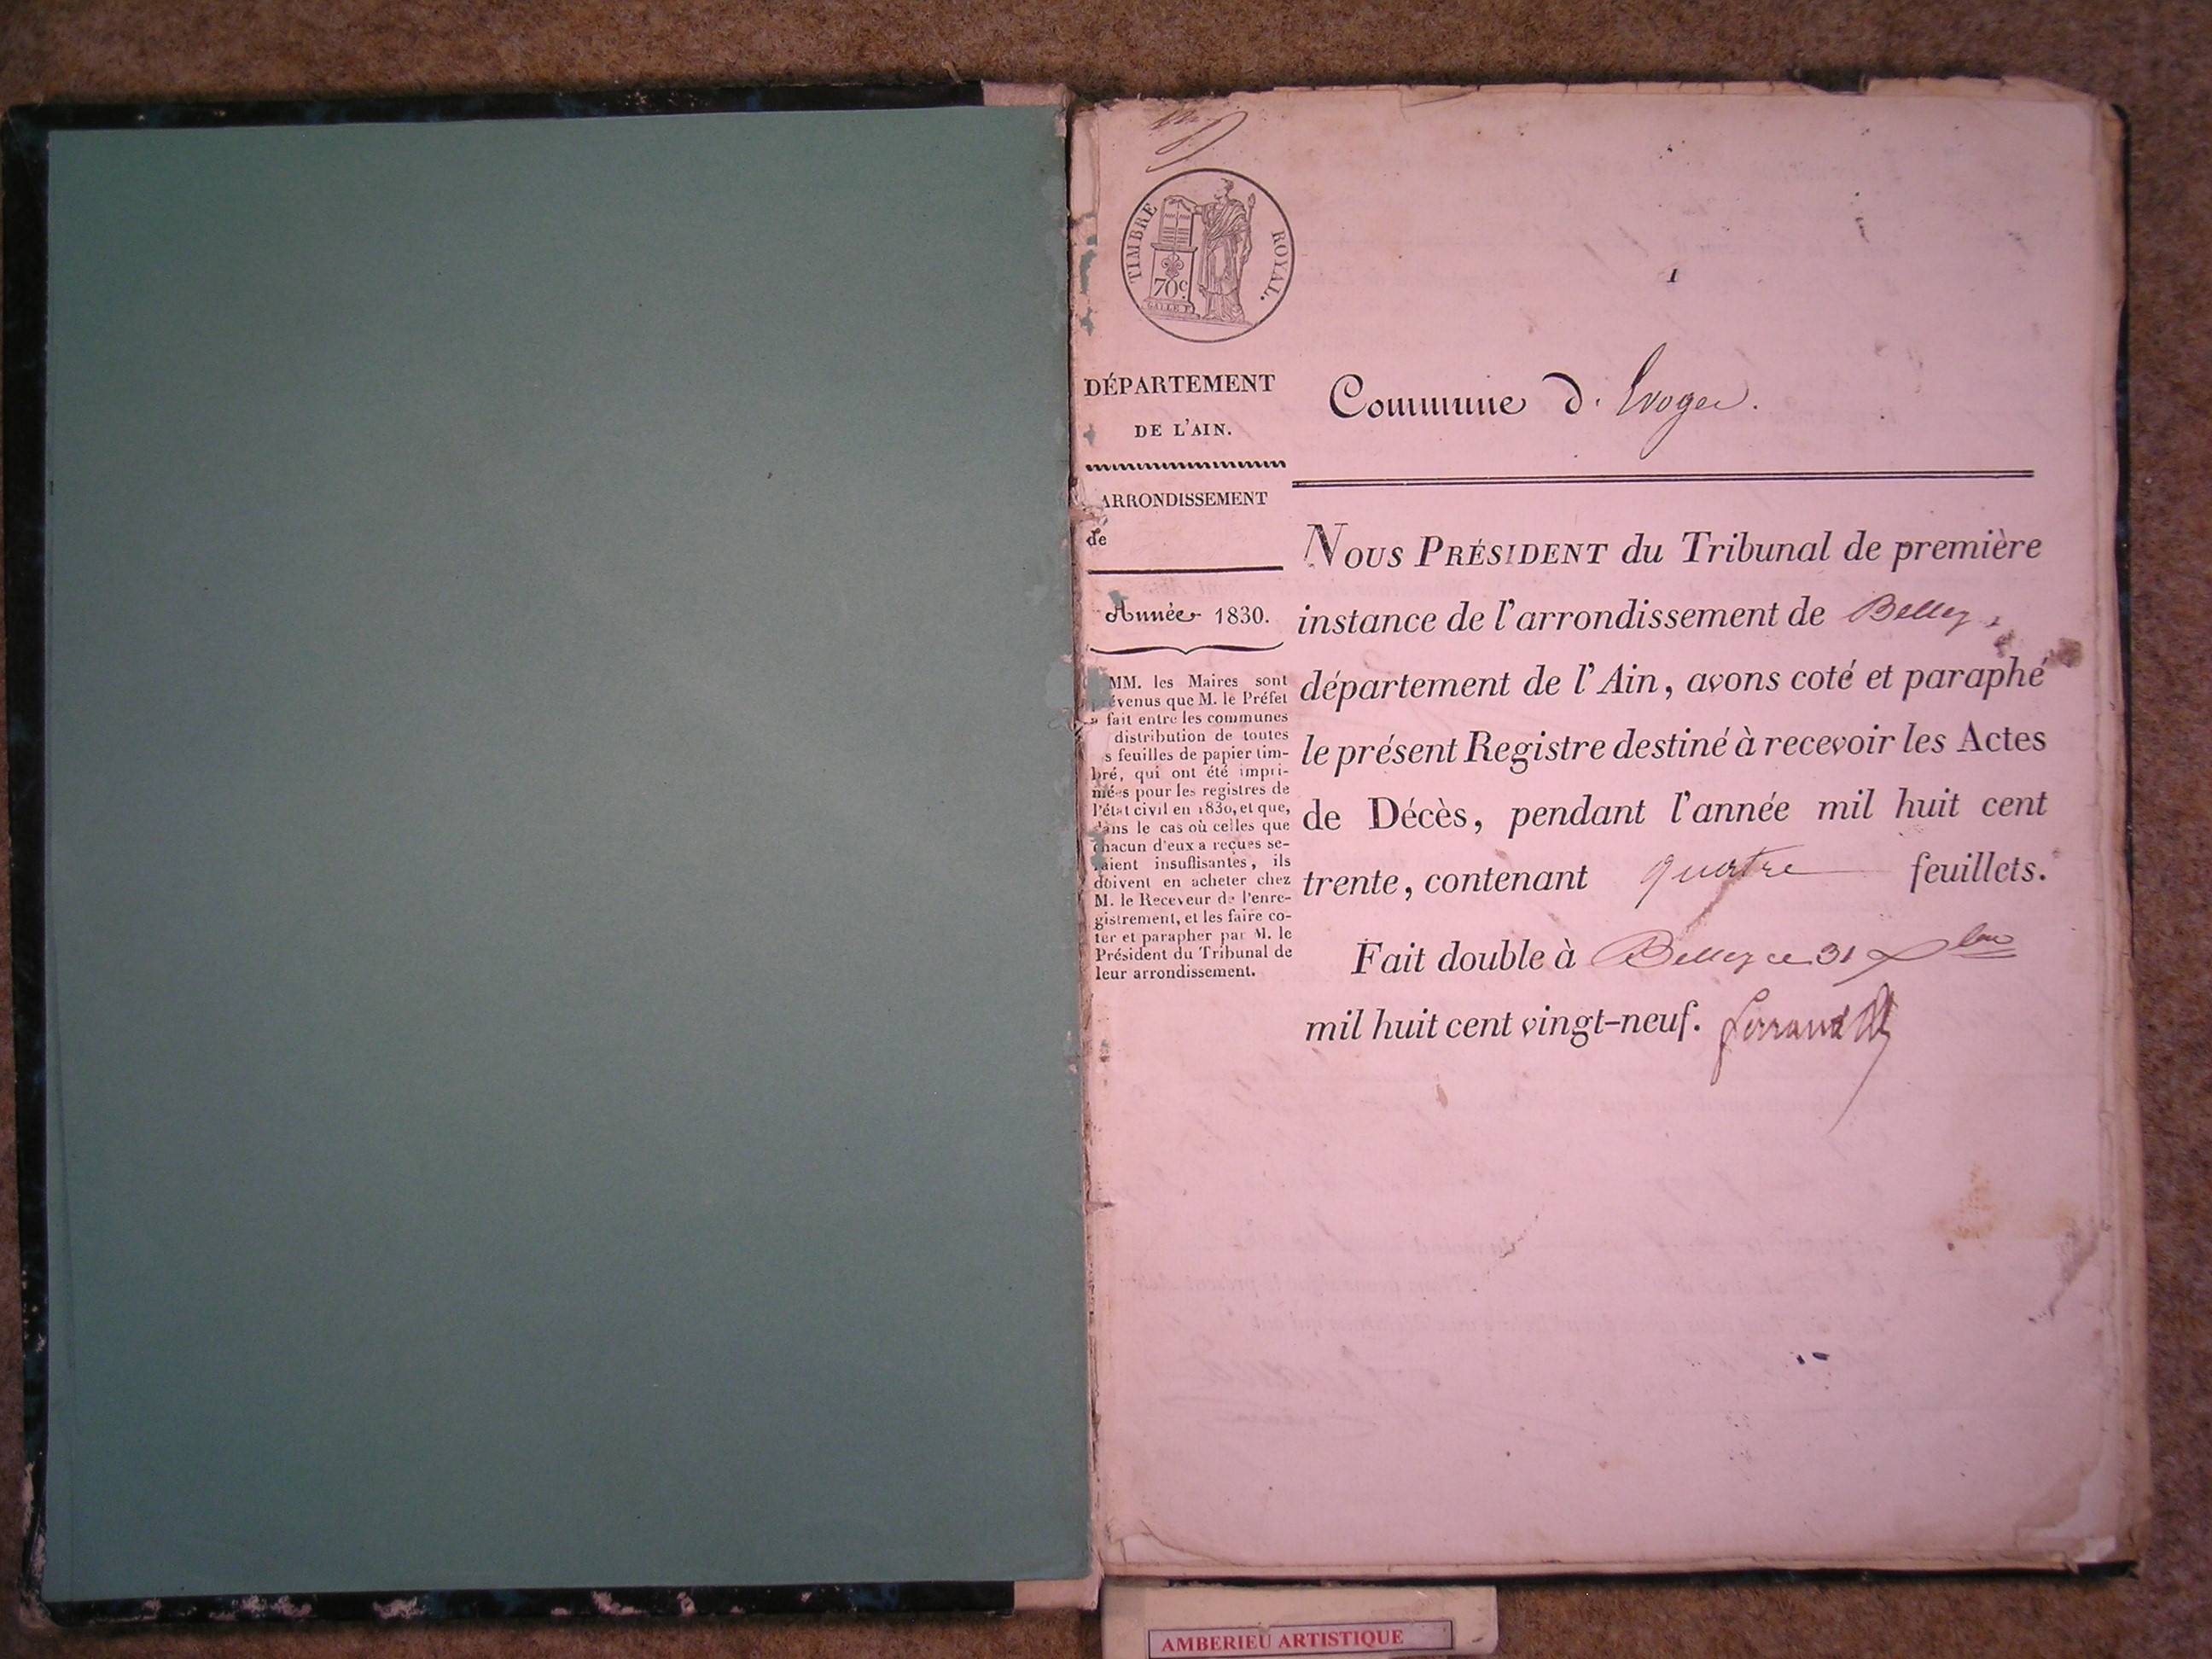 TIMBRE ROYAL.
70c.
1
DÉPARTEMENT
DE L'AIN.
Commune d. Evoges.
ARRONDISSEMENT
de
Année 1830.
MM. les Maires sont
prévenus que M. le Préfet
a fait entre les communes
distribution de toutes
s feuilles de papier tim-
bré, qui ont été impri-
mées pour les registres de
l'état civil en 1830, et que,
dans le cas où celles que
chacun d'eux a reçues se-
raient insuffisantes, ils
doivent en acheter chez
M. le Receveur de l'enre-
gistrement, et les faire co-
ter et parapher par M. le
Président du Tribunal de
leur arrondissement.
NOUS PRÉSIDENT du Tribunal de première
instance de l'arrondissement de Belley,
département de l'Ain, avons coté et paraphé
le présent Registre destiné à recevoir les Actes
de Décès, pendant l'année mil huit cent
trente, contenant quatre feuillets.
Fait double à Belley ce 31 Xbre
mil huit cent vingt-neuf. Ferrand
AMBERIEU ARTISTIQUE